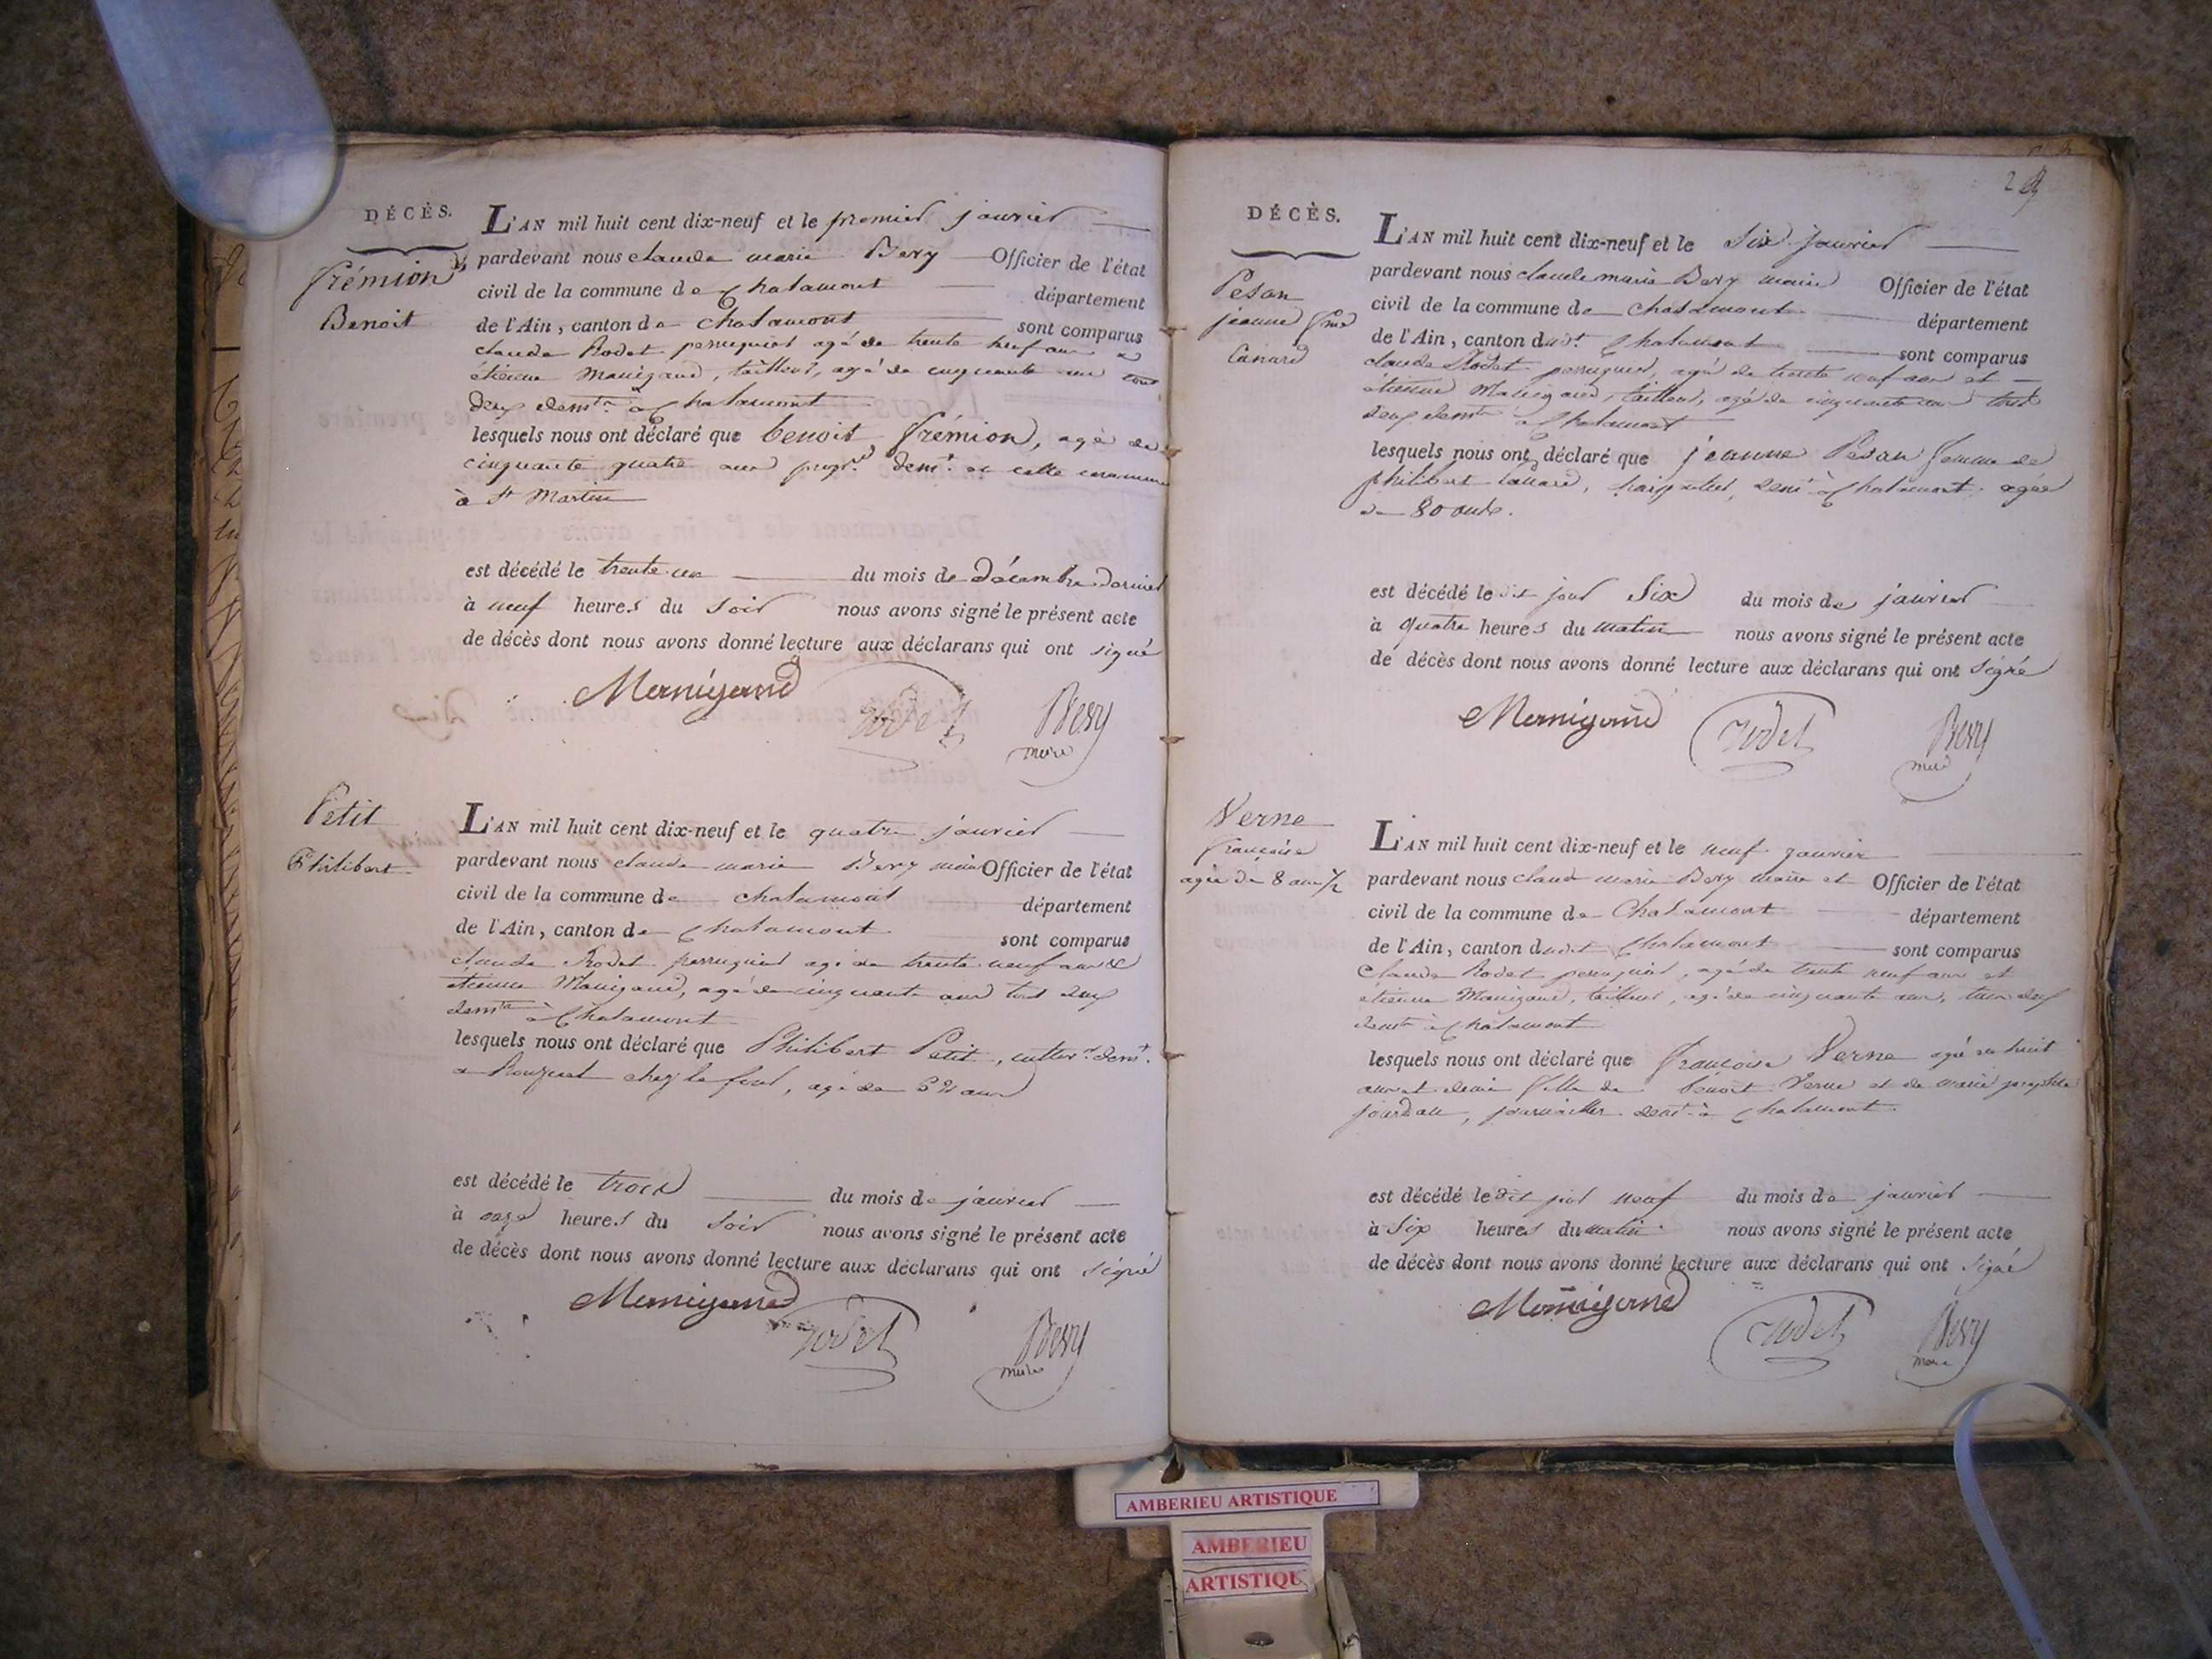 DÉCÈS.
Frémion
Benoit
L'AN mil huit cent dix-neuf et le premier janvier
pardevant nous claude marie Bery Officier de l'état
civil de la commune de Chatamont département
de l'Ain, canton de chatamont sont comparus
claude Rodet perruquier agé de trente neuf ans &
étienne Manigand, tailleur, agé de cinquante ans tous
deux demts à Chatamont
lesquels nous ont déclaré que benoit frémion, agé de
cinquante quatre ans propre demt en cette commune
à St Martin
est décédé le trente un du mois de décembre dernier
à neuf heures du soir nous avons signé le présent acte
de décès dont nous avons donné lecture aux déclarans qui ont signé
Manigand Rodet Bery
maire
Petit
Philibert
L'AN mil huit cent dix-neuf et le quatre janvier
pardevant nous claude marie Bery maire Officier de l'état
civil de la commune de chatamont département
de l'Ain, canton de Chatamont sont comparus
claude Rodet perruquier agé de trente neuf ans &
étienne Manigand, agé de cinquante ans tous deux
demts à Chatamont
lesquels nous ont déclaré que Philibert Petit, cultivr demt
a chez le , agé de ans
est décédé le trois du mois de janvier
à onze heures du soir nous avons signé le présent acte
de décès dont nous avons donné lecture aux déclarans qui ont signé
Manigand Rodet Bery
maire
DÉCÈS.
Pesan
jeanne fme
Canard
L'AN mil huit cent dix-neuf et le Six Janvier
pardevant nous claude marie Bery maire Officier de l'état
civil de la commune de Chatamont département
de l'Ain, canton dudt Chatamont sont comparus
claude Rodet perruquier, agé de trente neuf ans et
étienne Manigand, tailleur, agé de cinquante ans tous
deux demts à Chatamont
lesquels nous ont déclaré que jeanne Pesan femme de
philibert Canard, demt à Chatamont agée
de 80 ans.
est décédé le dit jour Six du mois de janvier
à quatre heures du matin nous avons signé le présent acte
de décès dont nous avons donné lecture aux déclarans qui ont signé
Manigand Rodet Bery
maire
Verne
françoise
agée de 8 ans 1/2
L'AN mil huit cent dix-neuf et le neuf janvier
pardevant nous claude marie Bery maire et Officier de l'état
civil de la commune de Chatamont département
de l'Ain, canton dudit Chatamont sont comparus
Claude Rodet perruquier, agé de trente neuf ans et
étienne Manigand, tailleur, agé de cinquante ans, tous deux
demts à Chatamont
lesquels nous ont déclaré que françoise Verne agée de huit
ans et demie fille de benoit Verne et de marie josephte
jourdan, journaliers demt à Chatamont.
est décédé le dit jour neuf du mois de janvier
à Six heures du matin nous avons signé le présent acte
de décès dont nous avons donné lecture aux déclarans qui ont signé
Manigand Rodet Bery
maire
AMBERIEU ARTISTIQUE
AMBERIEU
ARTISTIQU